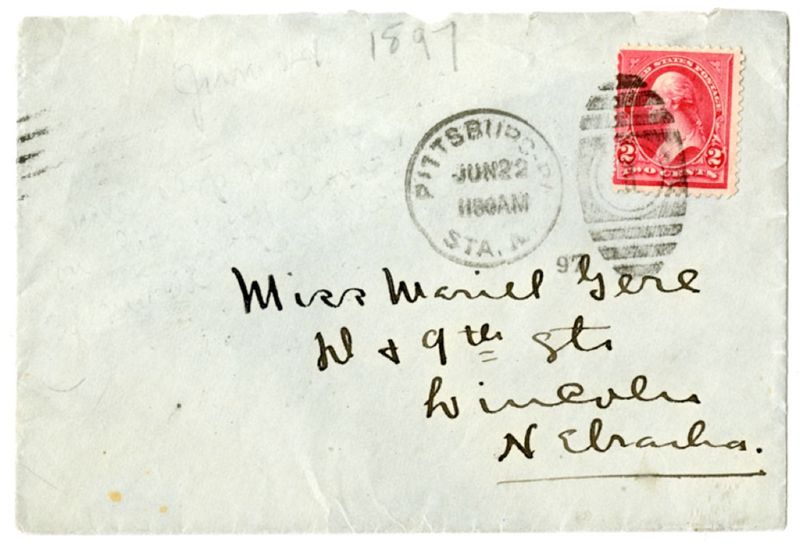 June 21 1897
UNITED STATES POSTAGE
2 2
TWO CENTS
PITTSBURG-PA
JUN 22
1130AM
STA. A
97
Miss Mariel Gere
D & 9th Sts
Lincoln
Nebraska.